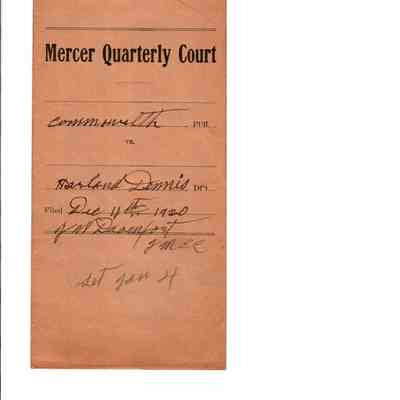 Mercer Quarterly Court
Commwelth PLff.
vs.
Harland Dennis, Dft.
Filed Dec 4th 1920
J W Davenport
set Jan 4